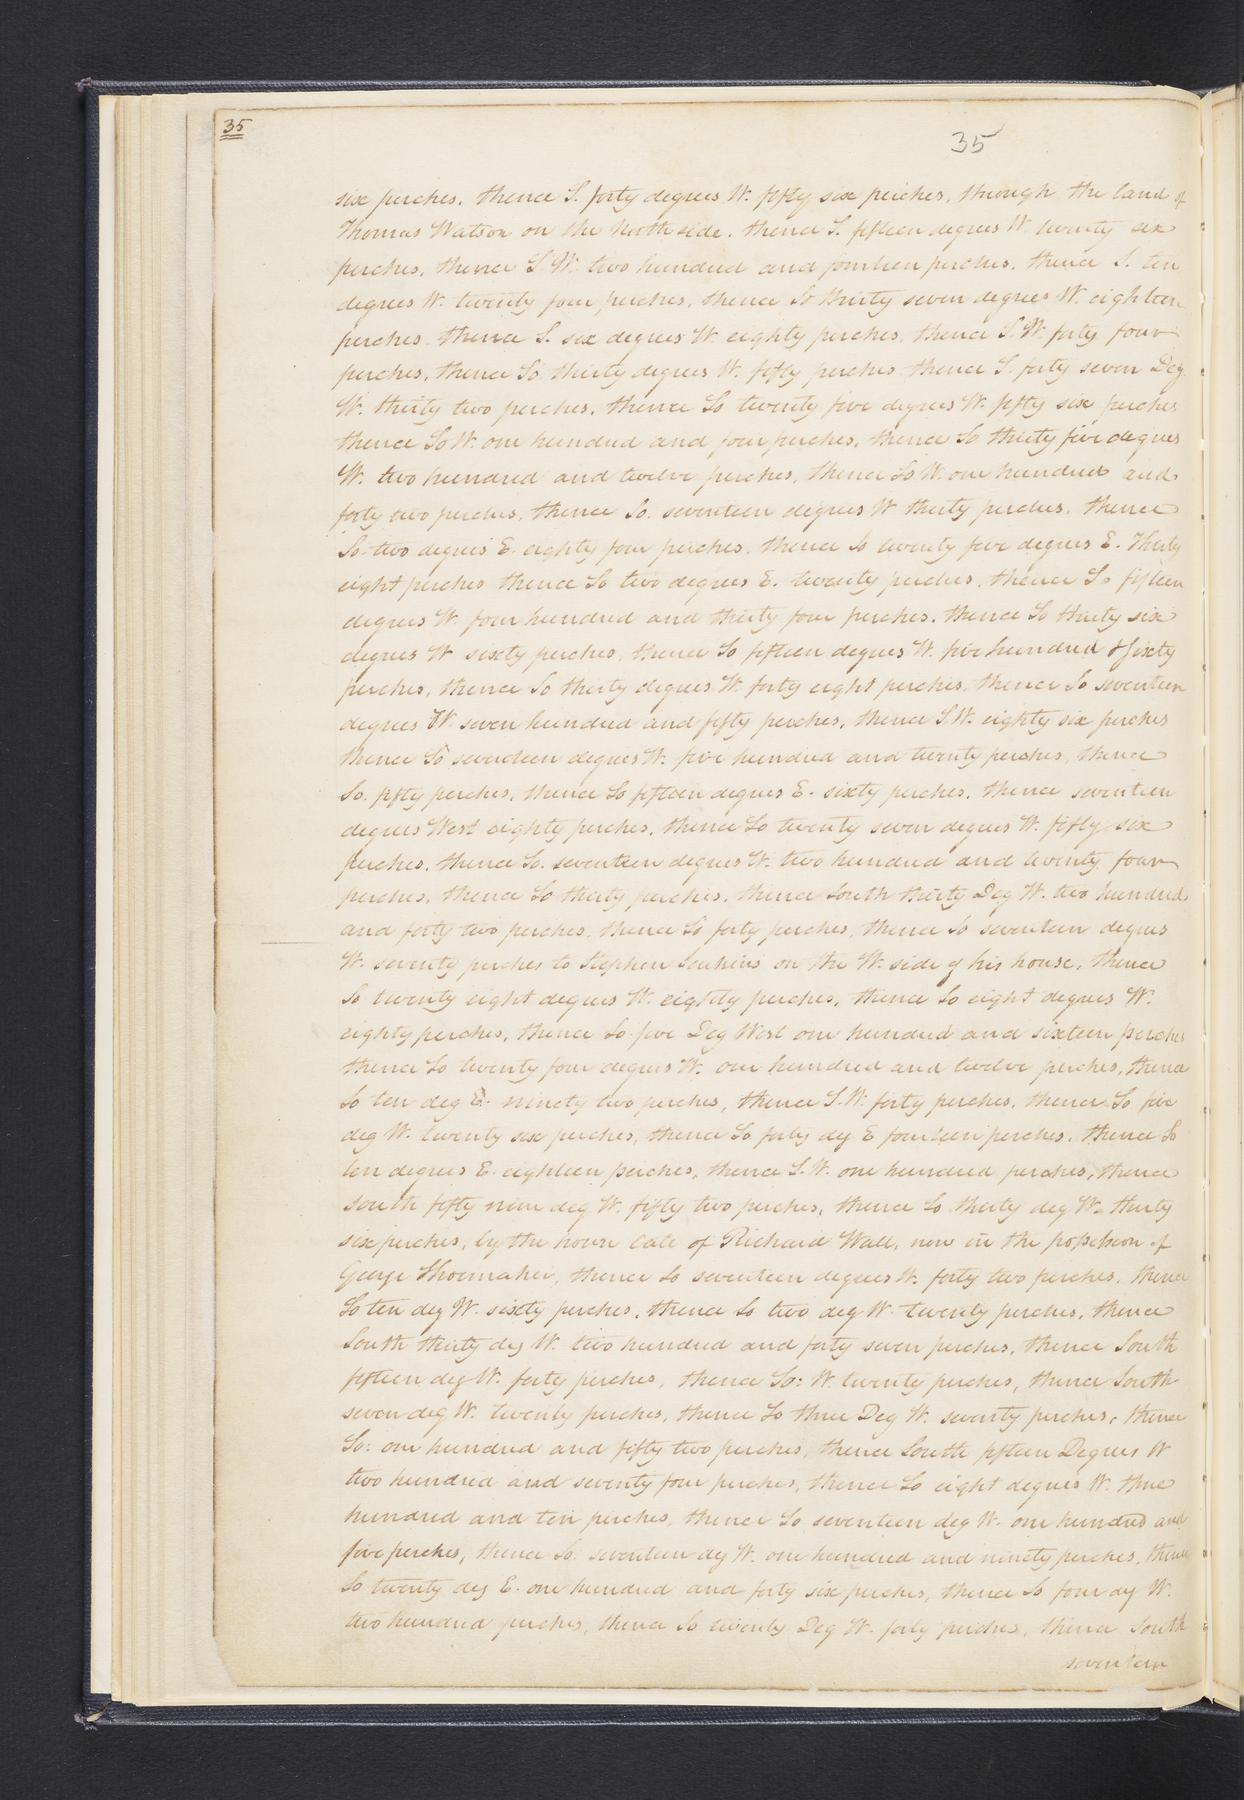 35
35
six perches, thence S. forty degrees W. fifty six perches, through the land of
Thomas Watson on the North side, thence S. fifteen degrees W. twenty six
perches, thence S.W. two hundred and fourteen perches, thence S. ten
degrees W. twenty four perches, thence So thirty seven degrees W. eighteen
perches thence S. six degrees W. eighty perches, thence S.W. forty four
perches, thence So. thirty degrees W. fifty perches thence S. forty seven Deg.
W. thirty two perches, thence So twenty five degrees W. fifty six perches
thence So W. one hundred and four perches, thence So thirty five degrees
W. two hundred and twelve perches, thence So W. one hundred and
forty two perches, thence So. seventeen degrees W thirty perches, thence
So. two degrees E. eighty four perches, thence So twenty five degrees E. Thirty
eight perches thence So two degrees E. twenty perches, thence So fifteen
degrees W. four hundred and thirty four perches, thence So thirty six
degrees W sixty perches, thence So fifteen degrees W. five hundred & Sixty
perches, thence So thirty degrees W. forty eight perches, thence So seventeen
degrees W seven hundred and fifty perches, thence S.W. eighty six perches
thence So seventeen degrees W. five hundred and twenty perches, thence
So. fifty perches, thence So fifteen degrees E. sixty perches, thence seventeen
degrees West eighty perches, thence So twenty seven degrees W. fifty six
perches, thence So. seventeen degrees W. two hundred and twenty four
perches, thence So thirty perches, thence South thirty Deg W. two hundred
and forty two perches, thence So forty perches, thence So seventeen degrees
W. seventy perches to Stephen Jenkins on the W. side of his house, thence
So twenty eight degrees W. eighty perches, thence So eight degrees W.
eighty perches, thence So. five Deg West one hundred and sixteen perches
thence So twenty four degrees W. one hundred and twelve perches, thence
So ten deg E. ninety two perches, thence S.W. forty perches, thence So five
deg W. twenty six perches, thence So forty deg E fourteen perches, thence So
ten degrees E. eighteen perches, thence S.W. one hundred perches, thence
South fifty nine deg W. fifty two perches, thence So thirty deg W. thirty
six perches, by the house late of Richard Wall, now in the possession of
George Shoemaker, thence So seventeen degrees W. forty two perches, thence
So ten deg W. sixty perches, thence So two deg W. twenty perches, thence
South thirty deg W. two hundred and forty seven perches, thence South
fifteen deg W. forty perches, thence So: W. twenty perches, thence South
seven deg W. twenty perches, thence So three Deg W. seventy perches, thence
So: one hundred and fifty two perches, thence South fifteen Degrees W
two hundred and seventy four perches, thence So eight degrees W. three
hundred and ten perches, thence So seventeen deg W. one hundred and
five perches, thence So. seventeen deg W. one hundred and ninety perches, thence
So twenty deg E. one hundred and forty six perches, thence So four deg W.
two hundred perches, thence So twenty Deg W. forty perches, thence South
seventeen